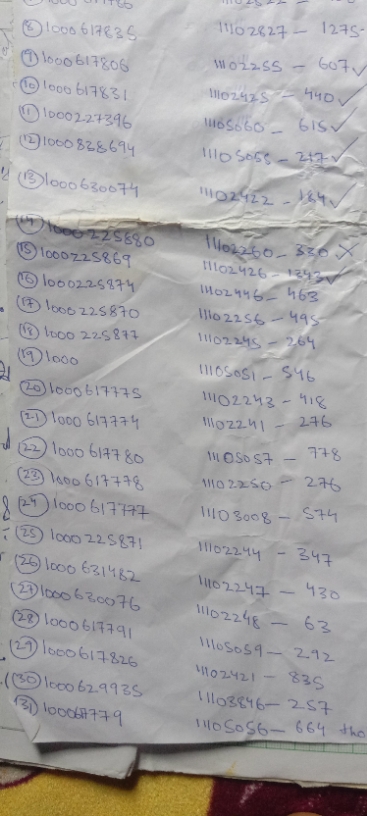 (8) 1000617835 11102827 - 1275
(9) 1000617806 11102255 - 607 ✓
(10) 1000617831 11102425 - 440 ✓
(11) 1000227396 11105060 - 615 ✓
(12) 1000828694 11105055 - 217 ✓
(13) 1000630074 11102422 - 184 ✓
(14) 1000225880 11102260 - 330 ✗
(15) 1000225869 11102426 - 1343 ✓
(16) 1000225874 11102446 - 463
(17) 1000225870 11102256 - 495
(18) 1000225877 11102245 - 264
(19) 1000 11105051 - 546
(20) 1000617775 11102243 - 418
(21) 1000617774 11102241 - 276
(22) 1000617780 11105057 - 778
(23) 1000617778 11102250 - 276
(24) 1000617777 11103008 - 574
(25) 1000225871 11102244 - 347
(26) 1000631482 11102247 - 430
(27) 1000630076 11102248 - 63
(28) 1000617791 11105059 - 292
(29) 1000617826 11102421 - 835
(30) 1000629935 11103846 - 257
(31) 100067779 11105056 - 664